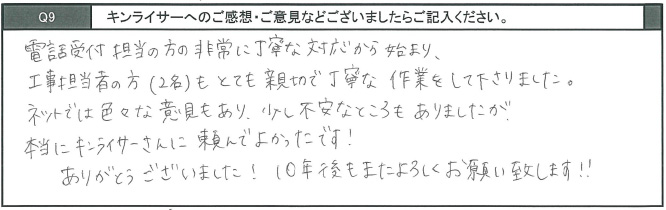 Q9 キンライサーへのご感想・ご意見などございましたらご記入ください。
電話受付担当の方の非常に丁寧な対応から始まり、
工事担当者の方(2名)もとても親切で丁寧な作業をして下さりました。
ネットでは色々な意見もあり、少し不安なところもありましたが、
本当にキンライサーさんに頼んでよかったです!
ありがとうございました! 10年後もまたよろしくお願い致します!!